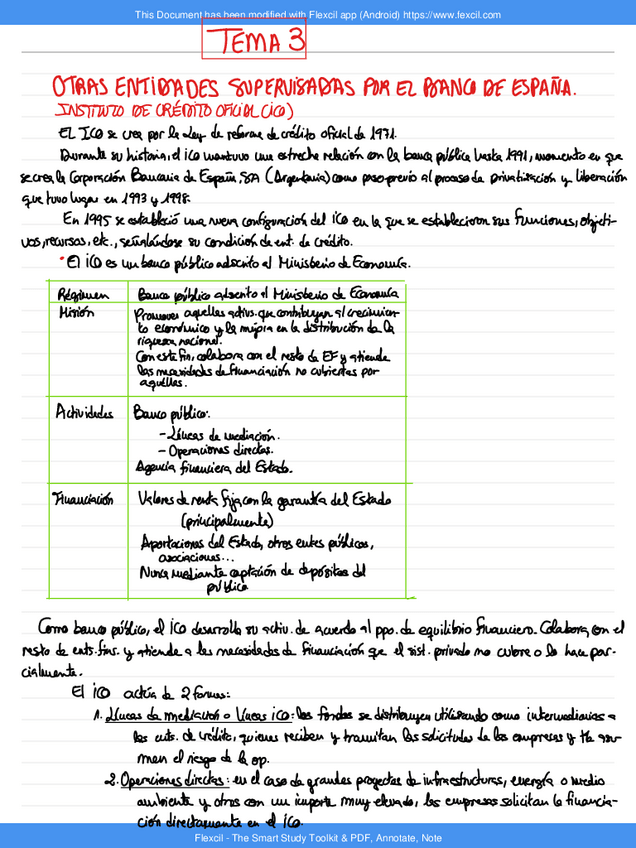 This Document has been modified with Flexcil app (Android) https://www.fexcil.com
TEMA 3
OTRAS ENTIDADES SUPERVISADAS POR EL BANCO DE ESPAÑA.
INSTITUTO DE CRÉDITO OFICIAL (ICO)
EL ICO se crea por la Ley de reforma de crédito oficial de 1971.
Durante su historia, el ICO mantuvo una estrecha relación con la banca pública hasta 1991, momento en que
se crea la Corporación Bancaria de España, SA (Argentaria) como paso previo al proceso de privatización y liberación
que tuvo lugar en 1993 y 1998.
En 1995 se estableció una nueva configuración del ICO en la que se establecieron sus funciones, objeti-
vos, recursos, etc., señalándose su condición de ent. de crédito.
• El ICO es un banco público adscrito al Ministerio de Economía.
Régimen Banco público adscrito al Ministerio de Economía
Misión Promover aquellas activs. que contribuyan al crecimien-
to económico y la mejora en la distribución de la
riqueza nacional.
Con este fin, colabora con el resto de EF y atiende
las necesidades de financiación no cubiertas por
aquellas.
Actividades Banco público:
- Líneas de mediación.
- Operaciones directas.
Agencia financiera del Estado.
Financiación Valores de renta fija con la garantía del Estado
(principalmente)
Aportaciones del Estado, otros entes públicos,
asociaciones...
Nunca mediante captación de depósitos del
público
Como banco público, el ICO desarrolla su activ. de acuerdo al ppo. de equilibrio financiero. Colabora con el
resto de ents. fins. y atiende a las necesidades de financiación que el sist. privado no cubre o lo hace par-
cialmente.
El ICO actúa de 2 formas:
1. Líneas de mediación o líneas ICO: los fondos se distribuyen utilizando como intermediarias a
las ents. de crédito, quienes reciben y tramitan las solicitudes de las empresas y asu-
men el riesgo de la op.
2. Operaciones directas: en el caso de grandes proyectos de infraestructuras, energía o medio
ambiente y otros con un importe muy elevado, las empresas solicitan la financia-
ción directamente en el ICO.
Flexcil - The Smart Study Toolkit & PDF, Annotate, Note